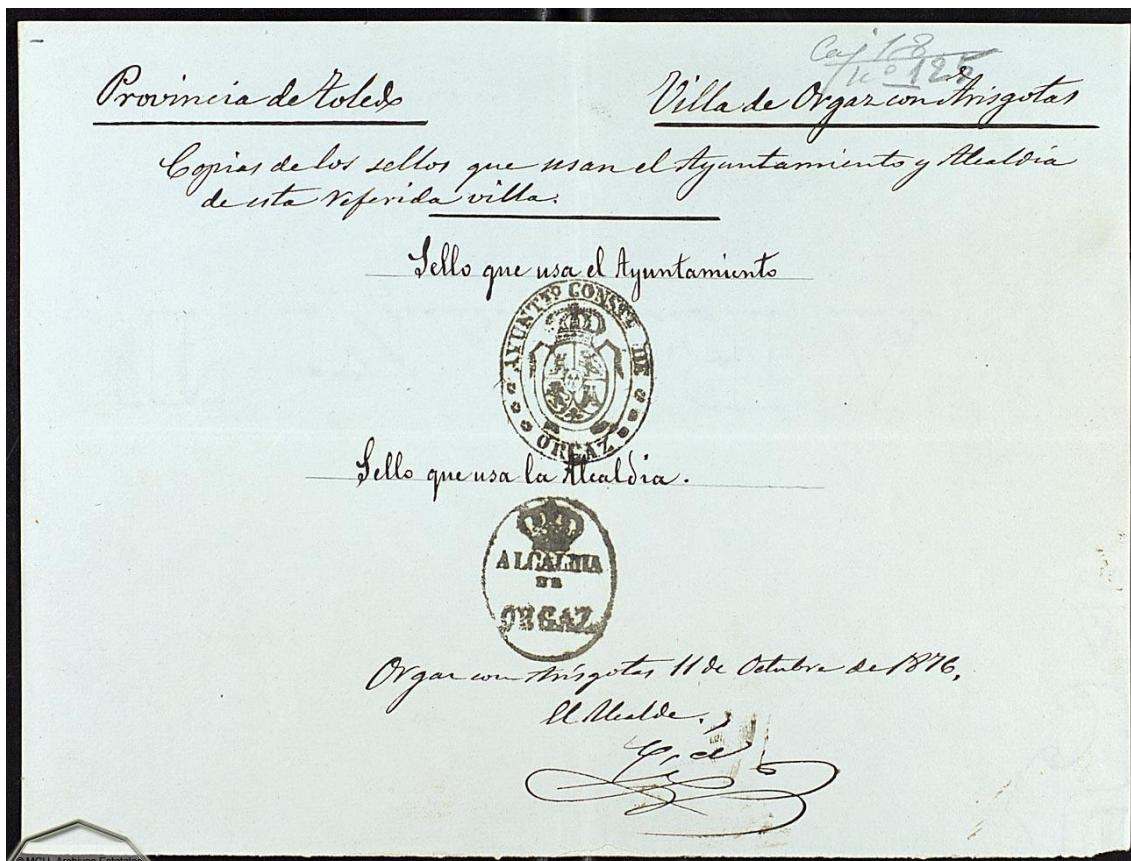 Caj 18
nº 125
Provincia de Toledo
Villa de Orgaz con Arisgotas
Copias de los sellos que usan el Ayuntamiento y Alcaldía
de esta referida villa.
Sello que usa el Ayuntamiento
AYUNTTº CONSTL DE
ORGAZ
Sello que usa la Alcaldia.
ALCALDIA
DE
ORGAZ
Orgaz con Arisgotas 11 de Octubre de 1876,
El Alcalde.
©MCU. Archivos Estatales